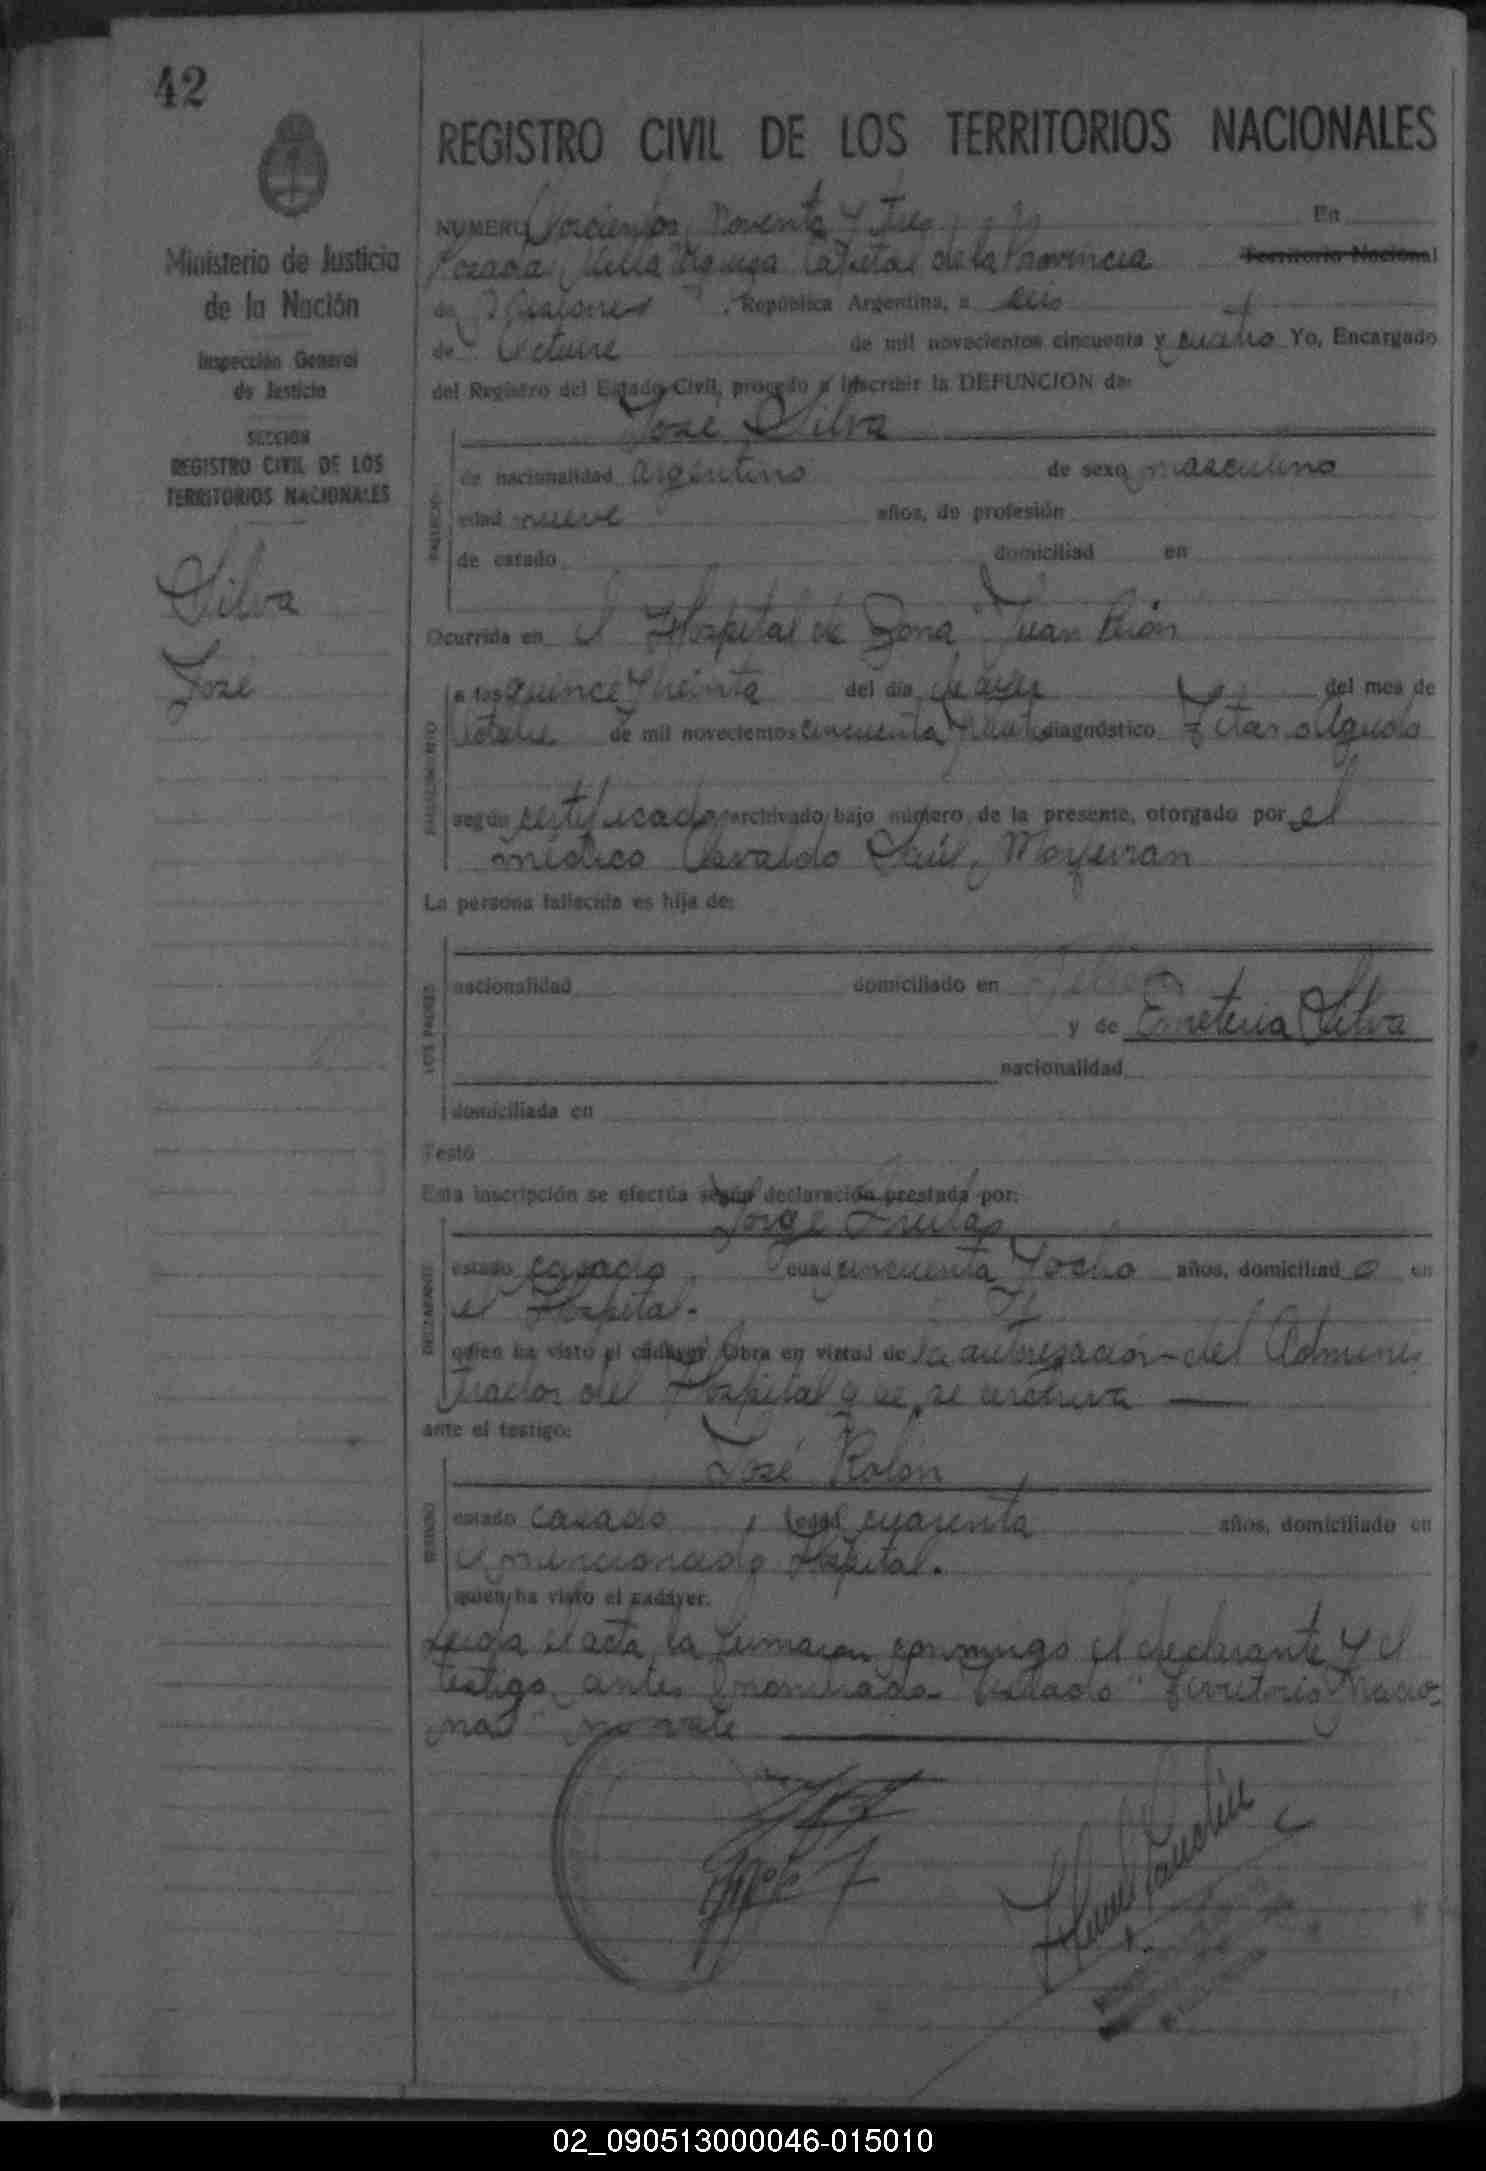 42
REGISTRO CIVIL DE LOS TERRITORIOS NACIONALES
Ministerio de Justicia
de la Nación
Inspección General
de Justicia
SECCION
REGISTRO CIVIL DE LOS
TERRITORIOS NACIONALES
Silva
José
NUMERO Doscientos noventa y tres En
Posadas Capital de la Provincia Territorio Nacional
de Misiones República Argentina, a seis
de Octubre de mil novecientos cincuenta y cuatro Yo, Encargado
del Registro del Estado Civil, procedo a inscribir la DEFUNCION de:
José Silva
de nacionalidad argentino de sexo masculino
edad nueve años, de profesión
de estado domiciliad en
Ocurrida en el Hospital de Zona "Juan Perón
a las quince y treinta del día de ayer del mes de
Octubre de mil novecientos cincuenta y cuatro diagnóstico
según certificado archivado bajo número de la presente, otorgado por el
médico Osvaldo Raúl
La persona fallecida es hija de:
LOS PADRES
nacionalidad domiciliado en
y de Emeteria Silva
nacionalidad
domiciliada en
Testó
Esta inscripción se efectúa según declaración prestada por:
Jorge Frutas
DECLARANTE
estado casado edad cincuenta y ocho años, domiciliad o en
el Hospital.
quien ha visto el cadáver. Obra en virtud de la autorización del Adminis
trador del Hospital que se archiva
ante el testigo:
José Rolón
TESTIGO
estado casado, edad cuarenta años, domiciliado en
el mencionado Hospital.
quien ha visto el cadáver.
Leida el acta, la firmaron conmigo el declarante y el
testigo antes nominado. Testado "Territorio Nacio-
nal" no vale
02_090513000046-015010